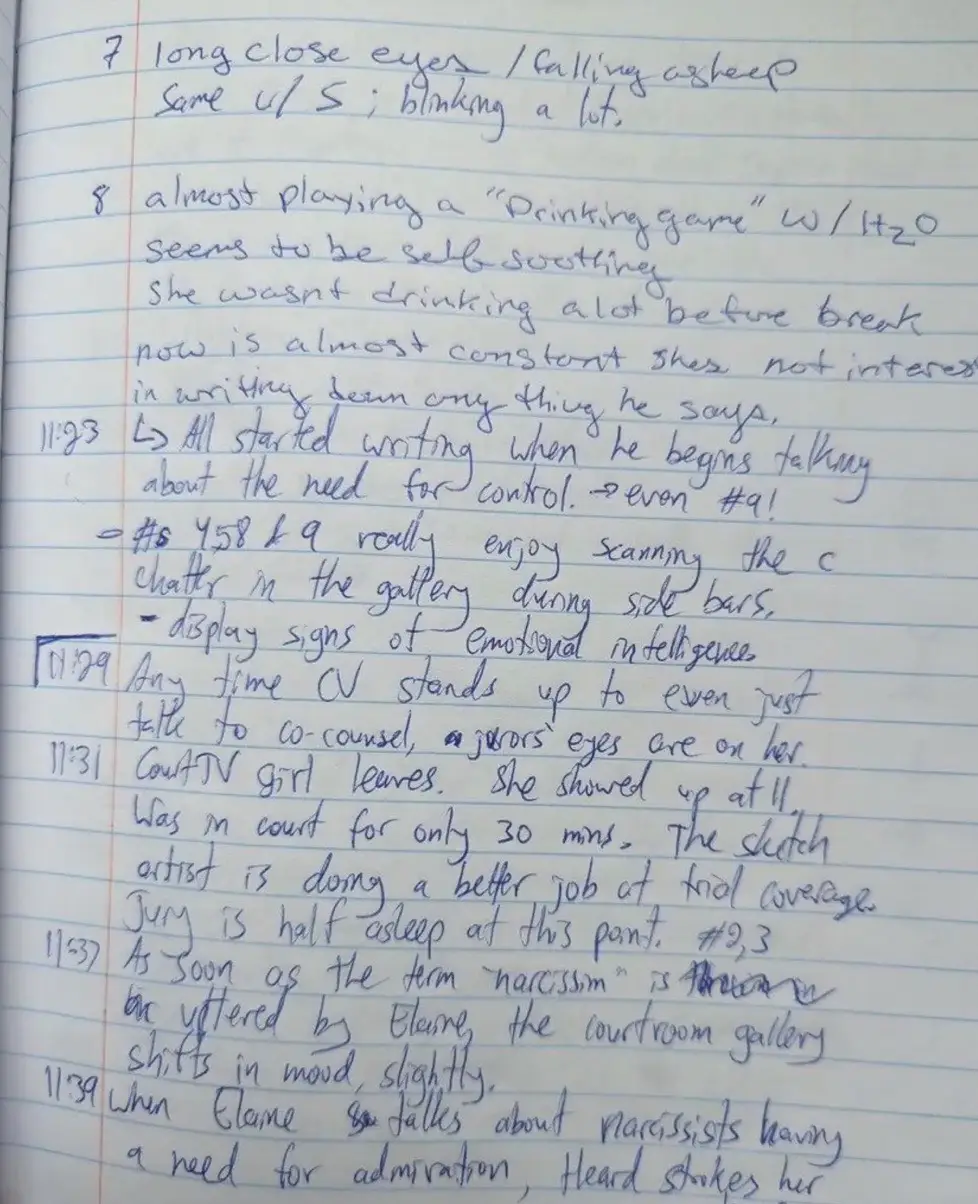 7 long close eyes / falling asleep
Same w/ 5 ; blinking a lot.
8 almost playing a "Drinking game" w/ H2O
seems to be self soothing
She wasnt drinking alot before break
now is almost constant shes not interes
in writing down any thing he says.
11:23 ↳ All started writing when he begins talking
about the need for control. → even #9!
- #s 4 5 8 & 9 really enjoy scanning the c
chatter in the gallery during side bars.
- display signs of emotional intelligence
11:29 Any time CV stands up to even just
talk to co-counsel, jurors' eyes are on her.
11:31 CourtTV girl leaves. She showed up at 11.
Was in court for only 30 mins. The sketch
artist is doing a better job at trial coverage.
Jury is half asleep at this point. #2,3
11:37 As soon as the term "narcissim" is
uttered by Elaine, the courtroom gallery
shifts in mood, slightly.
11:39 When Elaine talks about narcissists having
a need for admiration, Heard strokes her